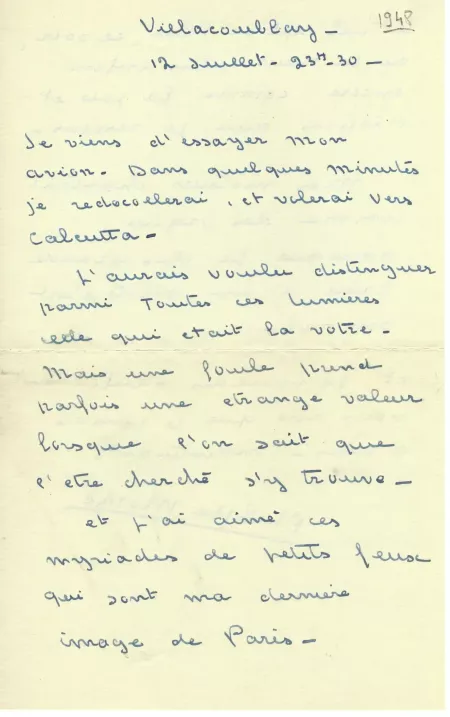 Villacoublay - 1948
12 Juillet - 23H-30 -
Je viens d'essayer mon
avion - Dans quelques minutes
je redecollerai, et volerai vers
Calcutta -
J'aurais voulu distinguer
parmi toutes ces lumières
celle qui etait la votre -
Mais une foule prend
parfois une etrange valeur
lorsque l'on sait que
l'etre cherché s'y trouve -
et j'ai aimé ces
myriades de petits feux
qui sont ma derniere
image de Paris -